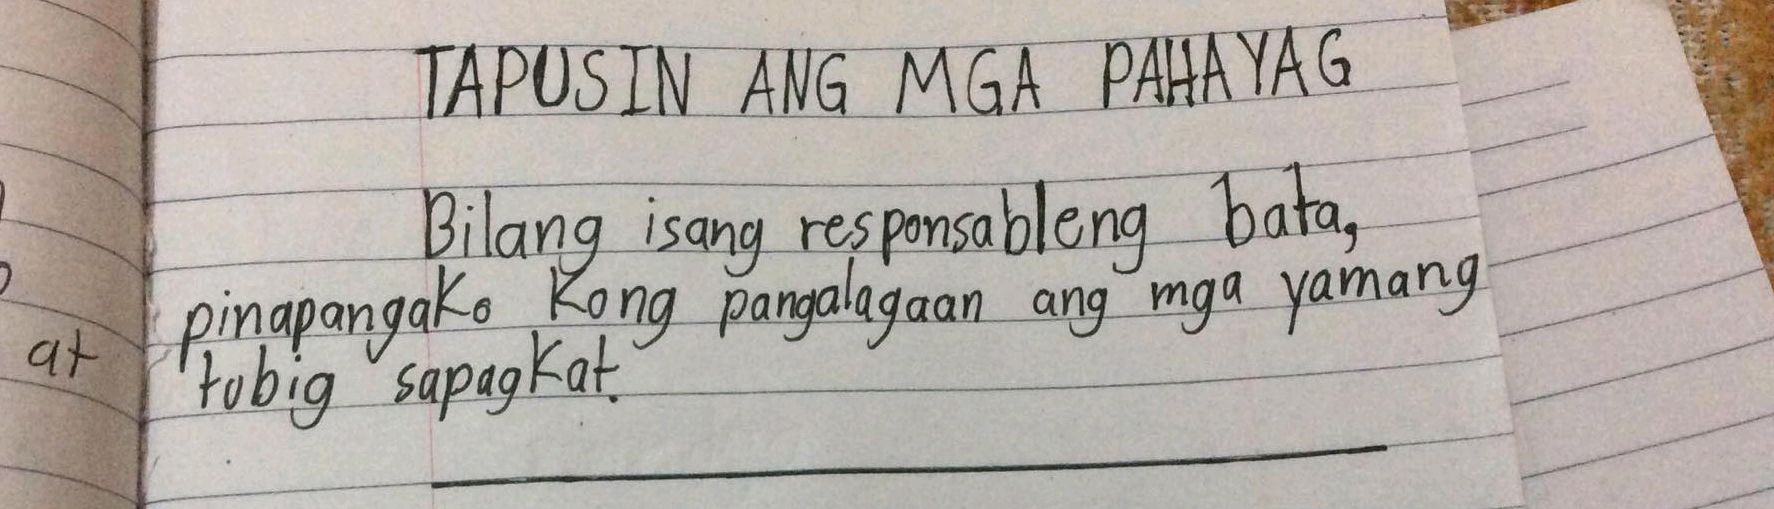 TAPUSIN ANG MGA PAHAYAG
Bilang isang responsableng bata,
pinapangako kong pangalagaan ang mga yamang
at
tubig sapagkat.